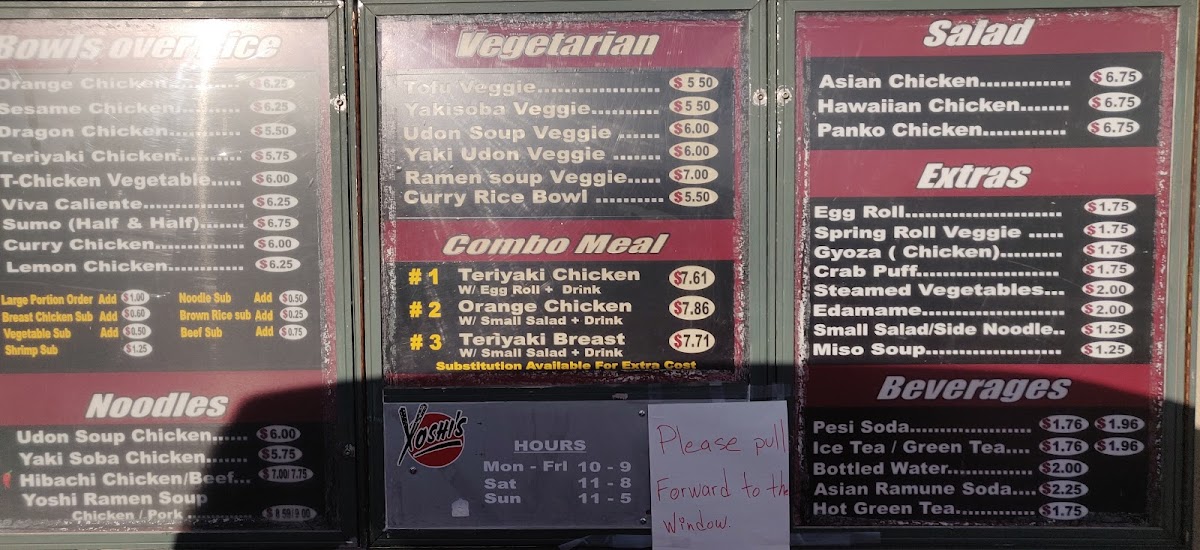 Bowls over rice
Orange Chicken........... $6.25
Sesame Chicken.......... $6.25
Dragon Chicken........... $5.50
Teriyaki Chicken.......... $5.75
T-Chicken Vegetable..... $6.00
Viva Caliente............... $6.25
Sumo (Half & Half)....... $6.75
Curry Chicken.............. $6.00
Lemon Chicken............ $6.25
Large Portion Order Add $1.00
Breast Chicken Sub Add $0.60
Vegetable Sub Add $0.50
Shrimp Sub $1.25
Noodle Sub Add $0.50
Brown Rice sub Add $0.25
Beef Sub Add $0.75
Noodles
Udon Soup Chicken...... $6.00
Yaki Soba Chicken....... $5.75
Hibachi Chicken/Beef... $7.00/ 7.75
Yoshi Ramen Soup
Chicken / Pork .............. $8.59/9.00
Vegetarian
Tofu Veggie................... $5 50
Yakisoba Veggie........... $5 50
Udon Soup Veggie ...... $6.00
Yaki Udon Veggie ....... $6.00
Ramen soup Veggie..... $7.00
Curry Rice Bowl .......... $5.50
Combo Meal
# 1 Teriyaki Chicken $7.61
W/ Egg Roll + Drink
# 2 Orange Chicken $7.86
W/ Small Salad + Drink
# 3 Teriyaki Breast $7.71
W/ Small Salad + Drink
Substitution Available For Extra Cost
YOSHI'S
HOURS
Mon - Fri 10 - 9
Sat 11 - 8
Sun 11 - 5
Please pull
Forward to the
window.
Salad
Asian Chicken............. $6.75
Hawaiian Chicken........ $6.75
Panko Chicken............. $6.75
Extras
Egg Roll........................ $1.75
Spring Roll Veggie ..... $1.75
Gyoza ( Chicken)......... $1.75
Crab Puff...................... $1.75
Steamed Vegetables... $2.00
Edamame..................... $2.00
Small Salad/Side Noodle.. $1.25
Miso Soup.................... $1.25
Beverages
Pesi Soda.................. $1.76 $1.96
Ice Tea / Green Tea.... $1.76 $1.96
Bottled Water............. $2.00
Asian Ramune Soda.... $2.25
Hot Green Tea............ $1.75